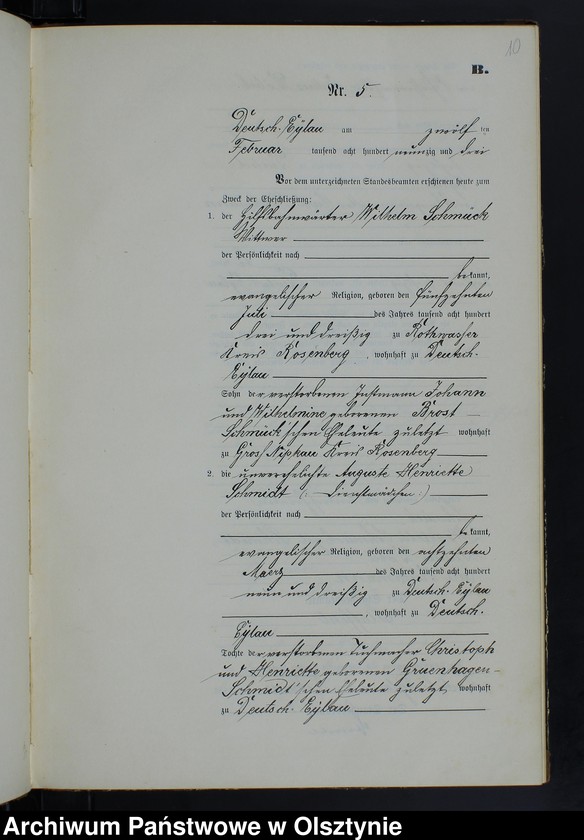 10
B.
Nr. 5.
Deutsch-Eylau am zwölf ten
Februar tausend acht hundert neunzig und drei
Vor dem unterzeichneten Standesbeamten erschienen heute zum
Zweck der Eheschließung:
1. der Hilfsbahnwärter Wilhelm Schmück
Wittwer
der Persönlichkeit nach
bekannt,
evangelischer Religion, geboren den fünfzehnten
Juli des Jahres tausend acht hundert
drei und dreißig zu Rothwasser
Kreis Rosenberg, wohnhaft zu Deutsch-
Eylau
Sohn der verstorbenen Instmann Johann
und Wilhelmine geborenen Brost
Schmück'schen Eheleute zuletzt wohnhaft
zu Gross Kreis Rosenberg
2. die unverehelichte Auguste Henriette
Schmidt (: Dienstmädchen :)
der Persönlichkeit nach
bekannt,
evangelischer Religion, geboren den achtzehnten
Maerz des Jahres tausend acht hundert
neun und dreißig zu Deutsch-Eylau
, wohnhaft zu Deutsch-
Eylau
Tochter der verstorbenen Tuchmacher Christoph
und Henriette geborenen Gruenhagen-
Schmidt'schen Eheleute zuletzt wohnhaft
zu Deutsch-Eylau
Archiwum Państwowe w Olsztynie